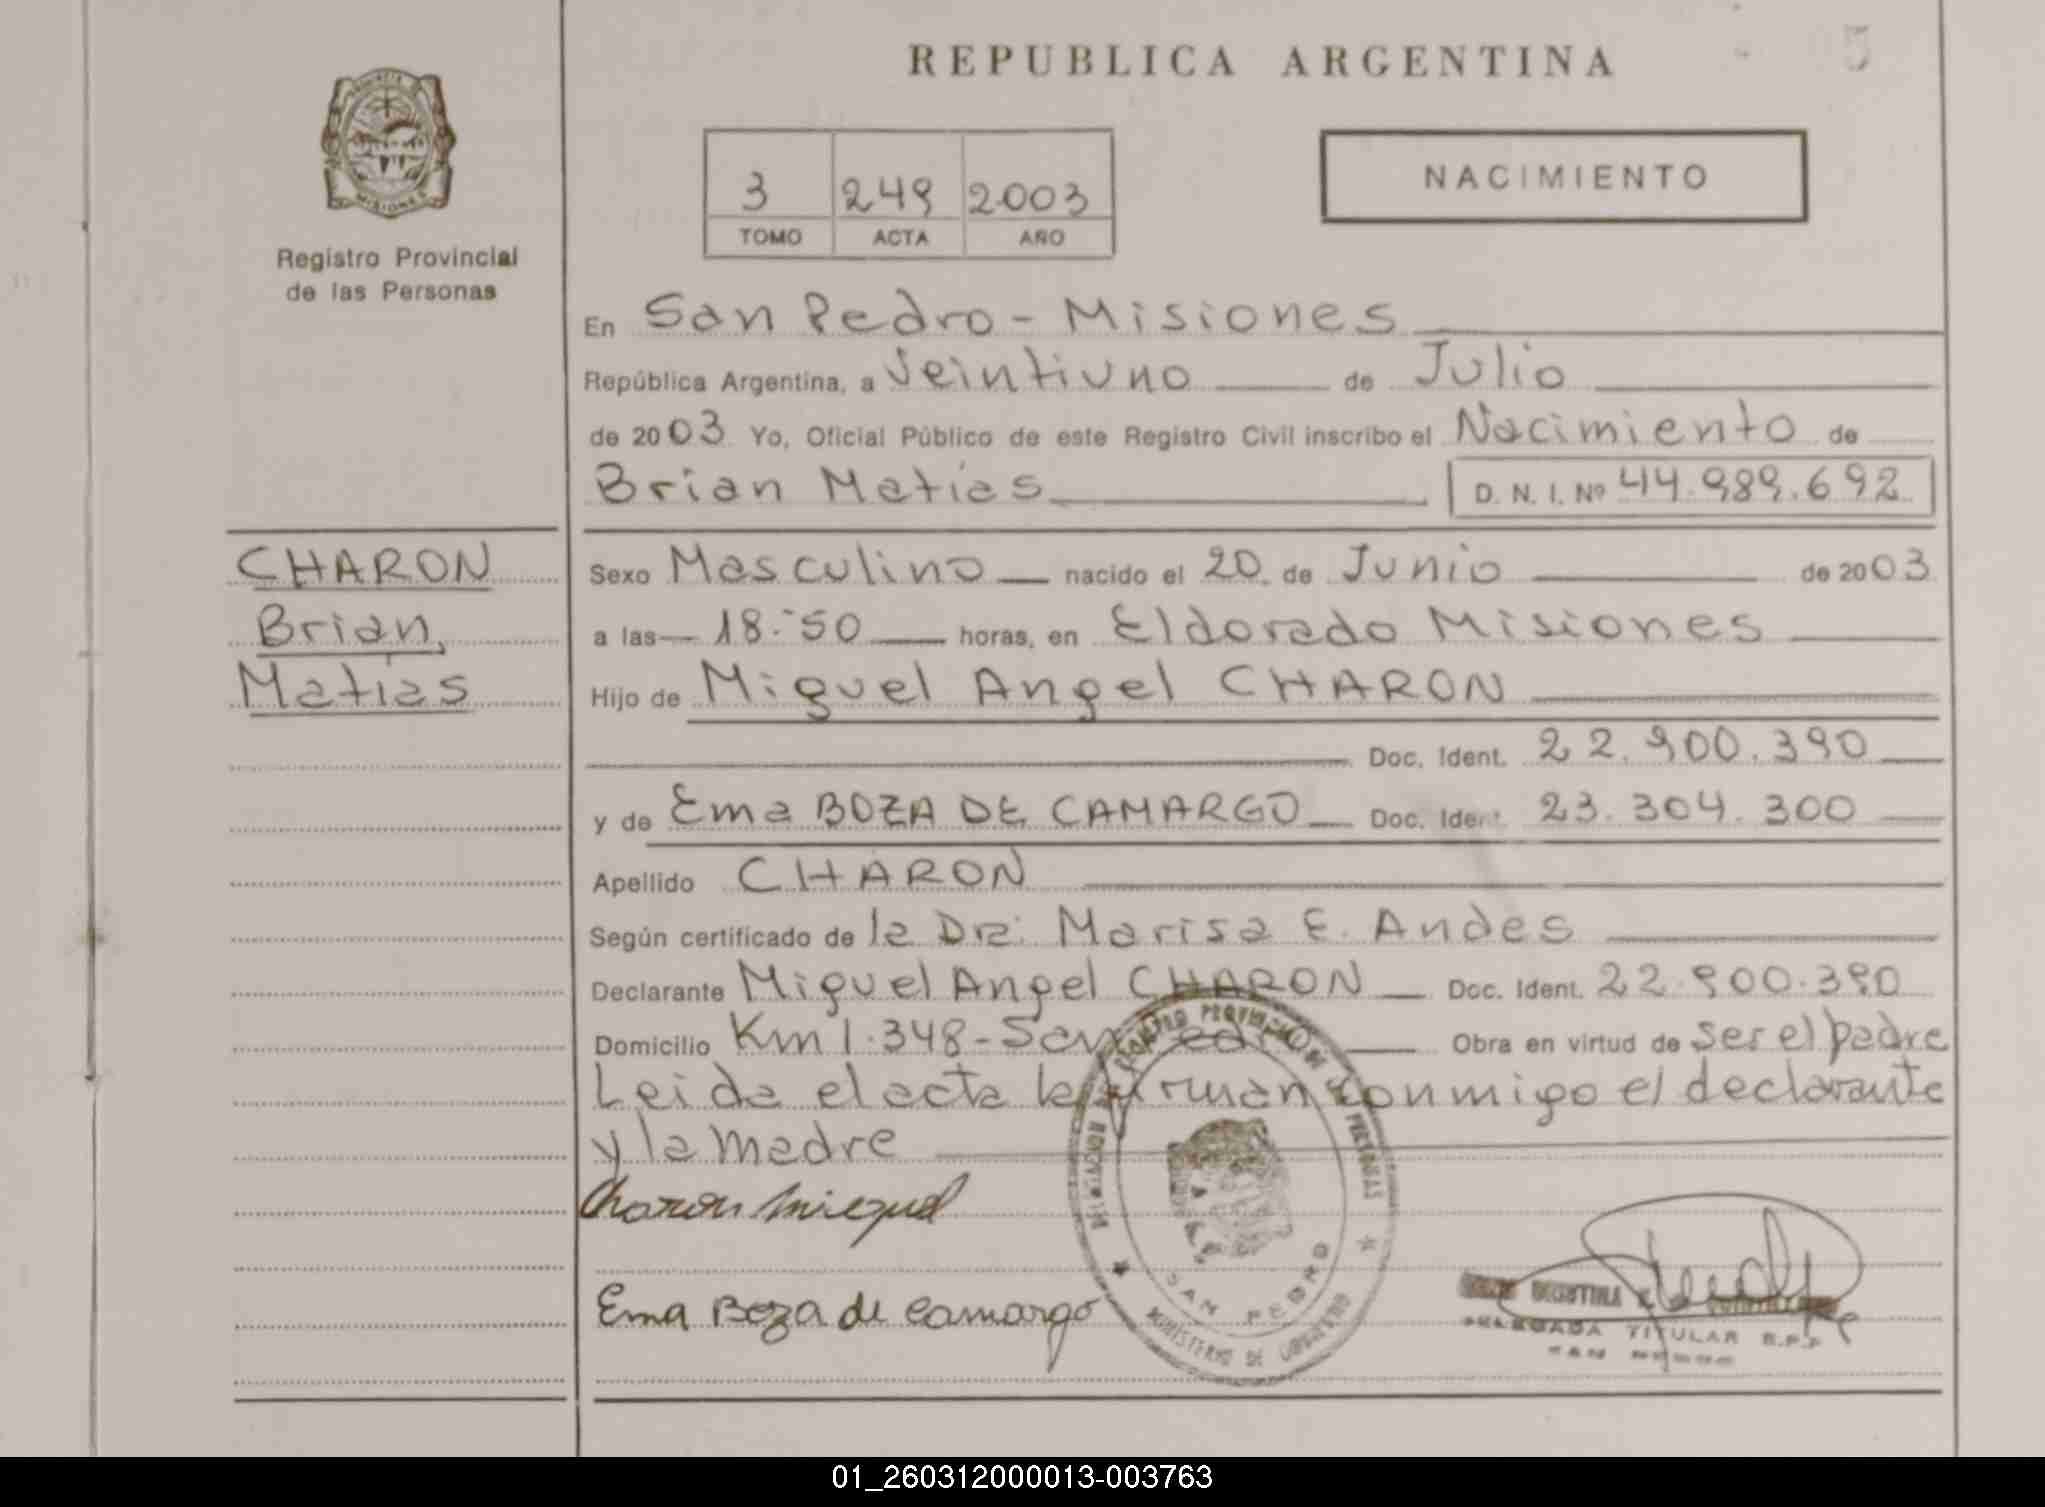 REPUBLICA ARGENTINA
PROVINCIA
MISIONES
Registro Provincial
de las Personas
3 249 2003
TOMO ACTA AÑO
NACIMIENTO
En San Pedro - Misiones
República Argentina, a Veintiuno de Julio
de 2003 Yo, Oficial Público de este Registro Civil inscribo el Nacimiento de
Brian Matías D. N. I. Nº 44.989.692
CHARON
Brian,
Matías
Sexo Masculino nacido el 20 de Junio de 2003
a las 18:50 horas, en Eldorado Misiones
Hijo de Miguel Angel CHARON
Doc. Ident. 22.900.390
y de Ema BOZA DE CAMARGO Doc. Ident. 23.304.300
Apellido CHARON
Según certificado de la Dra: Marisa E. Andes
Declarante Miguel Angel CHARON Doc. Ident. 22.900.390
Domicilio Km 1.348 - San Pedro Obra en virtud de ser el padre
Leida el acta la firman conmigo el declarante
y la madre
Charon Miguel
Ema Boza de Camargo
REGISTRO PROVINCIAL DE LAS PERSONAS
SAN PEDRO
MINISTERIO DE GOBIERNO
DELEGADA TITULAR R.P.P
SAN PEDRO
01_260312000013-003763